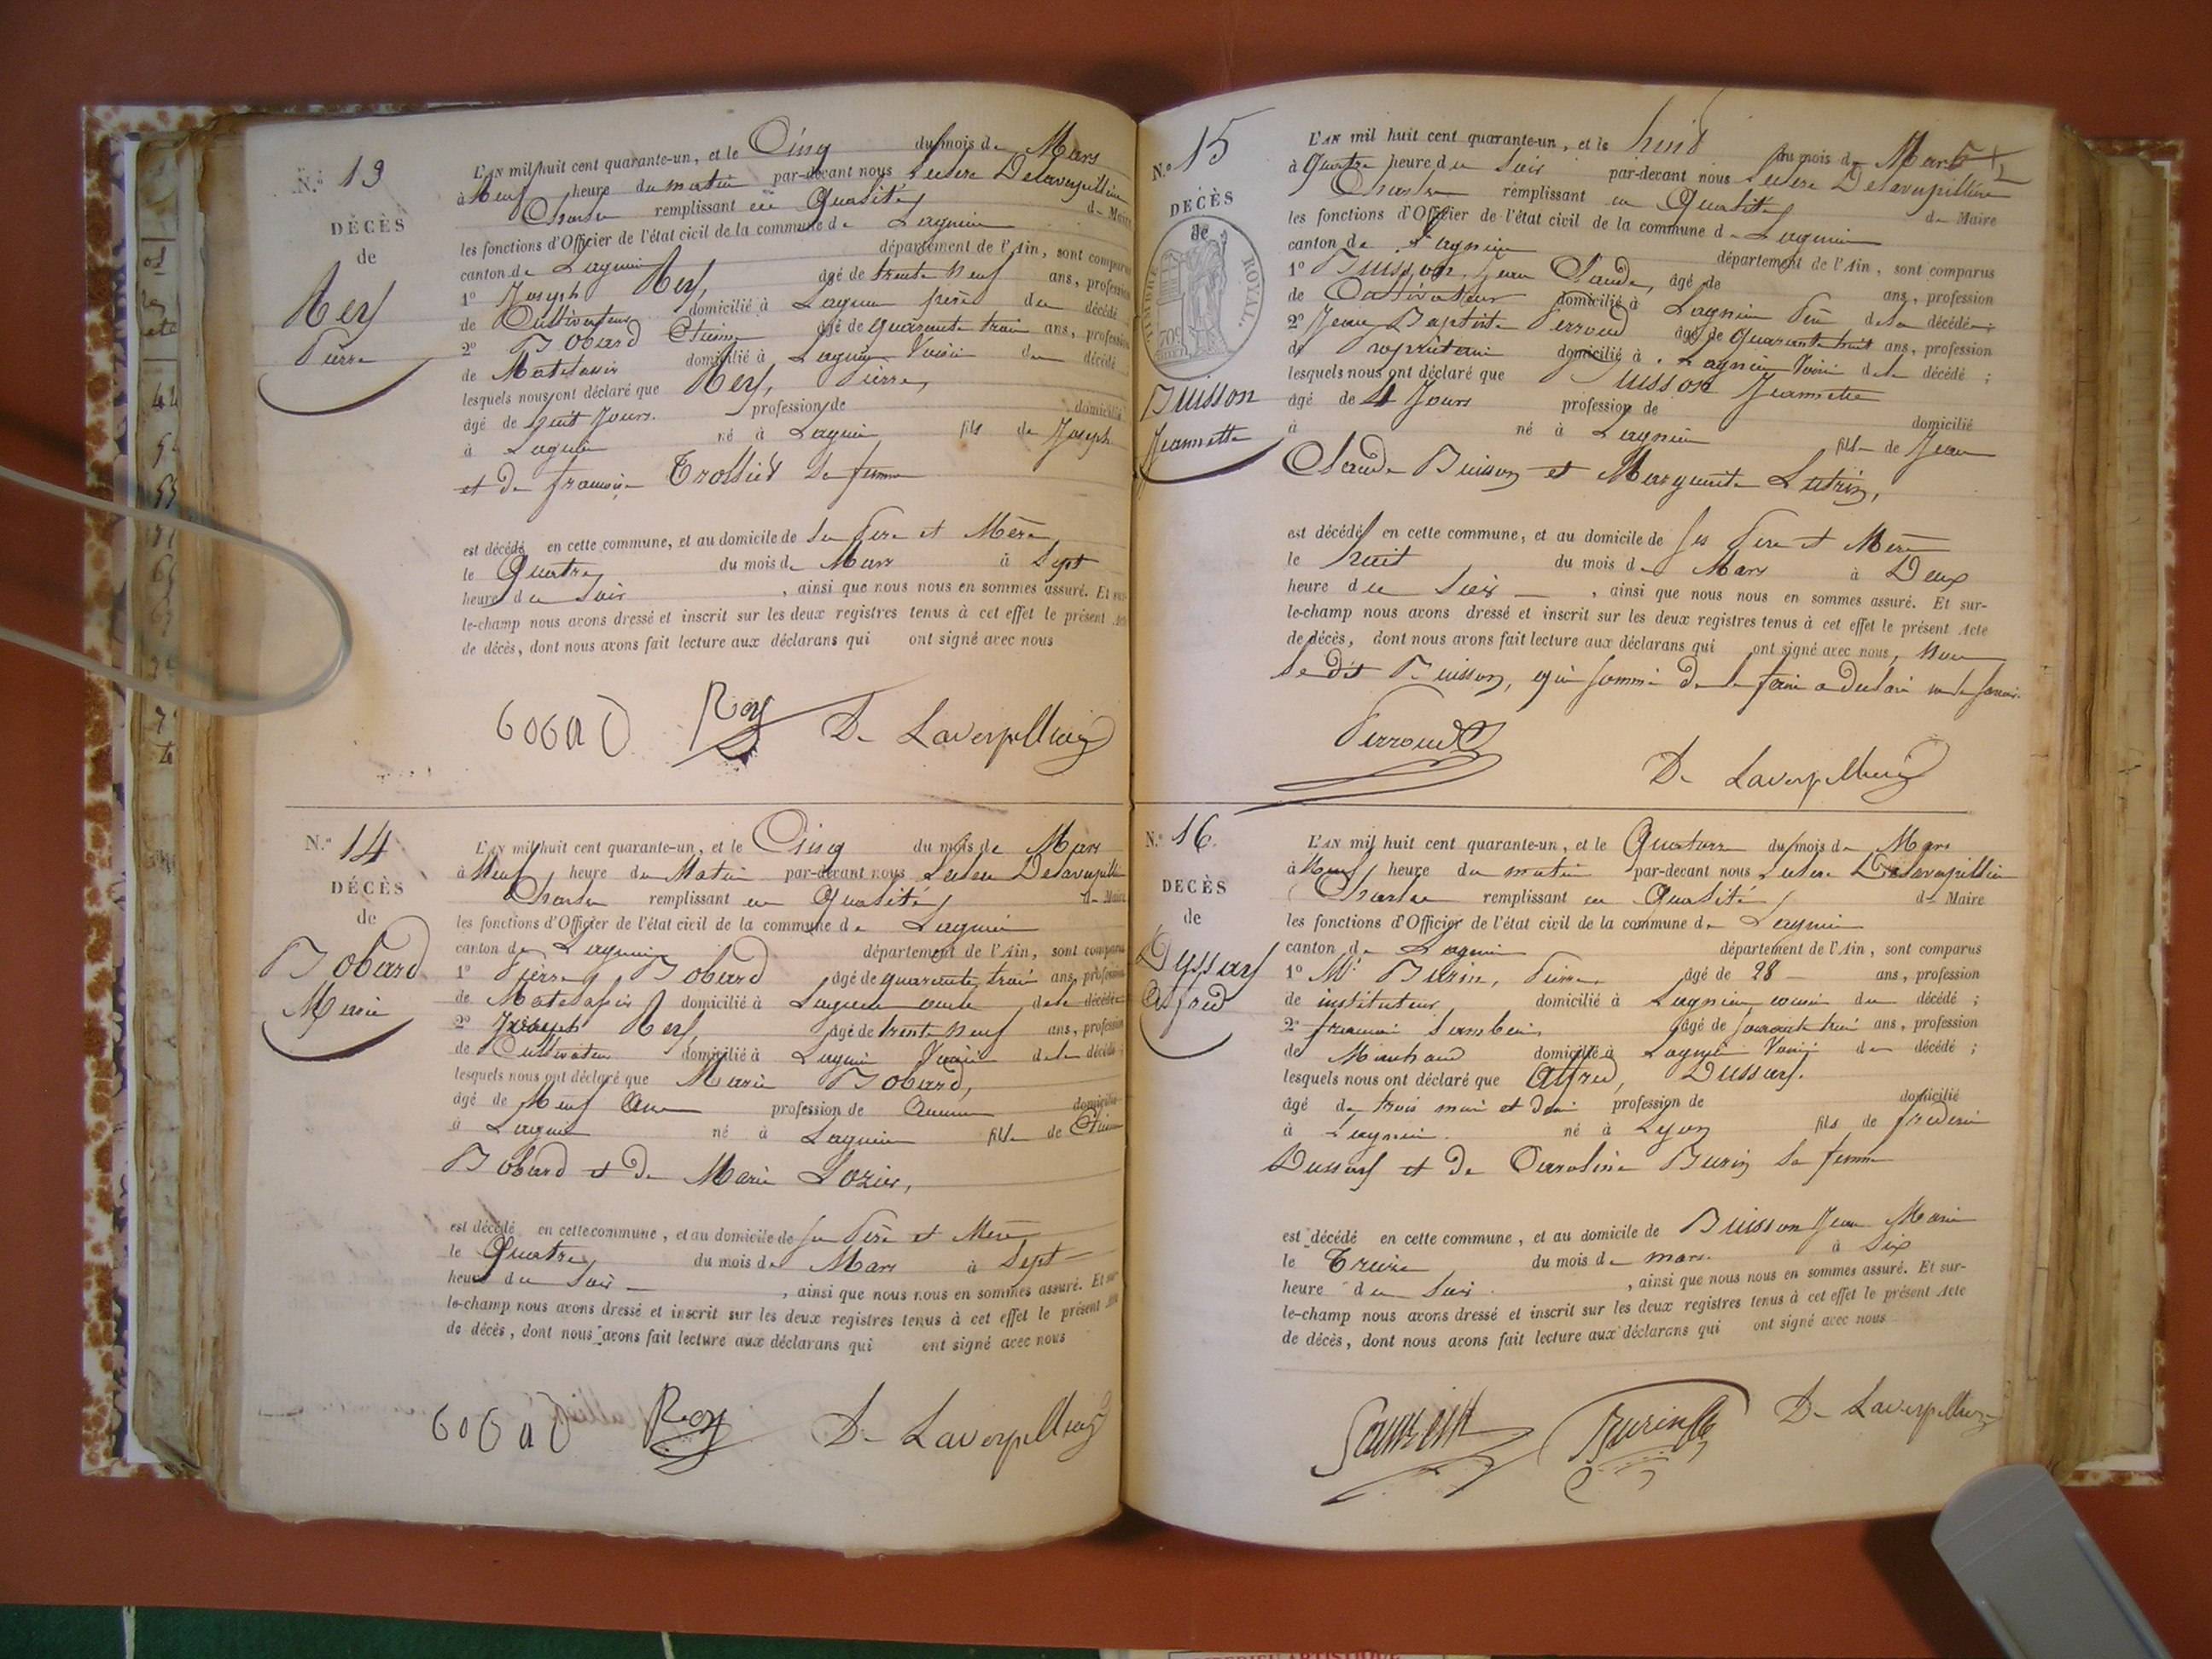 N.º 13
DÉCÈS
de
Rey
Pierre
L'AN mil huit cent quarante-un, et le Cinq du mois de Mars
à Neuf heure du matin par-devant nous
Charles remplissant en qualité de Maire
les fonctions d'Officier de l'état civil de la commune de Lagnieu
canton de Lagnieu département de l'Ain, sont comparus
1º Joseph Rey, âgé de trente neuf ans, profession
de Cultivateur domicilié à Lagnieu père du décédé
2º Bobard Etienne âgé de quarante trois ans, profession
de Matelassier domicilié à Lagnieu Voisin du décédé
lesquels nous ont déclaré que Rey, Pierre,
âgé de huit Jours profession de domicilié
à Lagnieu né à Lagnieu fils de Joseph
et de françoise Trossiat Sa femme
est décédé en cette commune, et au domicile de Ses Père et Mère
le Quatre du mois de Mars à Sept
heure du Soir , ainsi que nous nous en sommes assuré. Et sur-
le-champ nous avons dressé et inscrit sur les deux registres tenus à cet effet le présent Acte
de décès, dont nous avons fait lecture aux déclarans qui ont signé avec nous
Roy De Laverpilliere
N.º 14
DÉCÈS
de
Bobard
Marie
L'AN mil huit cent quarante-un, et le Cinq du mois de Mars
à Neuf heure du Matin par-devant nous
Charles remplissant en qualité de Maire
les fonctions d'Officier de l'état civil de la commune de Lagnieu
canton de Lagnieu département de l'Ain, sont comparus
1º Pierre Bobard âgé de quarante trois ans, profession
de Matelassier domicilié à Lagnieu oncle de la décédée
2º Joseph Rey, âgé de trente neuf ans, profession
de Cultivateur domicilié à Lagnieu Voisin de la décédé ;
lesquels nous ont déclaré que Marie Bobard,
âgé de Neuf Ans profession de Aucune domicilié
à Lagnieu né à Lagnieu fille de Etienne
Bobard et de Marie Lozier,
est décédé en cette commune, et au domicile de Ses Père et Mère
le Quatre du mois de Mars à Sept
heure du Soir , ainsi que nous nous en sommes assuré. Et sur-
le-champ nous avons dressé et inscrit sur les deux registres tenus à cet effet le présent Acte
de décès, dont nous avons fait lecture aux déclarans qui ont signé avec nous
Roy De Laverpilliere
N.º 15
DÉCÈS
de
TIMBRE ROYAL.
Buisson
Jeannette
L'AN mil huit cent quarante-un, et le huit du mois de Mars
à Quatre heure du Soir par-devant nous
Charles remplissant en Qualité de Maire
les fonctions d'Officier de l'état civil de la commune de Lagnieu
canton de Lagnieu département de l'Ain, sont comparus
1º Buisson, Jean Claude, âgé de ans, profession
de Cultivateur domicilié à Lagnieu Père de la décédée ;
2º Jean Baptiste Perroud âgé de quarante huit ans, profession
de Propriétaire domicilié à Lagnieu Voisin de la décédé ;
lesquels nous ont déclaré que Buisson Jeannette
âgé de 4 Jours profession de domicilié
à né à Lagnieu fille de Jean
Claude Buisson et Marguerite Lutrin,
est décédé en cette commune, et au domicile de Ses Père et Mère
le huit du mois de Mars à Deux
heure du Soir , ainsi que nous nous en sommes assuré. Et sur-
le-champ nous avons dressé et inscrit sur les deux registres tenus à cet effet le présent Acte
de décès, dont nous avons fait lecture aux déclarans qui ont signé avec nous, Non
le dit Buisson, qui sommé de le faire a déclaré ne le savoir.
Perroud
De Laverpilliere
N.º 16.
DÉCÈS
de
Dussarf
Alfred
L'AN mil huit cent quarante-un, et le Quatorze du mois de Mars
à Neuf heure du matin par-devant nous
Charles remplissant en Qualité de Maire
les fonctions d'Officier de l'état civil de la commune de Lagnieu
canton de Lagnieu département de l'Ain, sont comparus
1º Mr Burin, Pierre, âgé de 28 ans, profession
de instituteur domicilié à Lagnieu cousin du décédé ;
2º françois âgé de ans, profession
de Marchand domicilié à Lagnieu Voisin du décédé ;
lesquels nous ont déclaré que Alfred, Dussarf.
âgé de trois mois et demi profession de domicilié
à Lagnieu. né à Lyon fils de frederic
Dussarf et de Caroline Burin Sa femme
est décédé en cette commune, et au domicile de Buisson Jean Marie
le Treize du mois de mars à Six
heure du Soir , ainsi que nous nous en sommes assuré. Et sur-
le-champ nous avons dressé et inscrit sur les deux registres tenus à cet effet le présent Acte
de décès, dont nous avons fait lecture aux déclarans qui ont signé avec nous
Burin De Laverpilliere